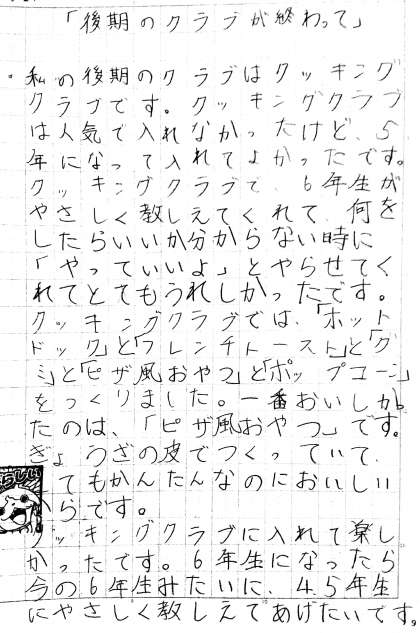 「後期のクラブが終わって」
私の後期のクラブはクッキング
クラブです。クッキングクラブ
は人気で入れなかったけど、5
年になって入れてよかったです。
クッキングクラブで、6年生が
やさしく教しえてくれて、何を
したらいいか分からない時に
「やっていいよ」とやらせてく
れてとてもうれしかったです。
クッキングクラブでは、「ホット
ドック」と「フレンチトースト」と「グ
ミ」と「ピザ風おやつ」と「ポップコーン」
をつくりました。一番おいしか
たのは、「ピザ風おやつ」です。
ぎょうざの皮でつくっていて、
てもかんたんなのにおいしい
からです。
クッキングクラブに入れて楽し
かったです。6年生になったら
今の6年生みたいに、4.5年生
にやさしく教しえてあげたいです。